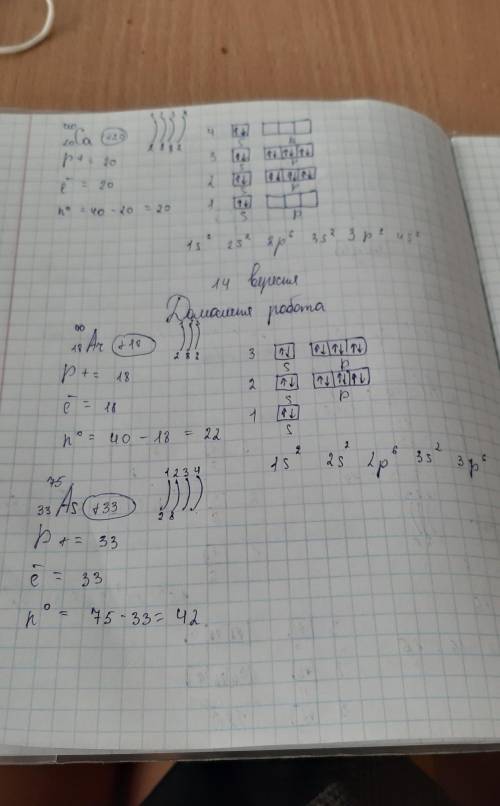 ₂₀Ca +20 2 8 8 2
p+ = 20
e⁻ = 20
n⁰ = 40 - 20 = 20
4 ↑↓ s p
3 ↑↓ s ↑↓ ↑↓ ↑↓ p
2 ↑↓ s ↑↓ ↑↓ ↑↓ p
1 ↑↓ s p
1s² 2s² 2p⁶ 3s² 3p² 4s²
14 вересня
Домашня робота
₁₈Ar +18 2 8 2
p+ = 18
e⁻ = 18
n⁰ = 40 - 18 = 22
3 ↑↓ s ↑↓ ↑↓ ↑↓ p
2 ↑↓ s ↑↓ ↑↓ ↑↓ p
1 ↑↓ s
1s² 2s² 2p⁶ 3s² 3p⁶
1 2 3 4
⁷⁵₃₃As +33 2 8
p+ = 33
e⁻ = 33
n⁰ = 75 - 33 = 42